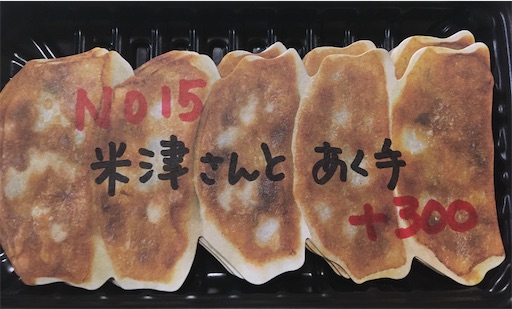 NO15
米津さんと あく手
+300